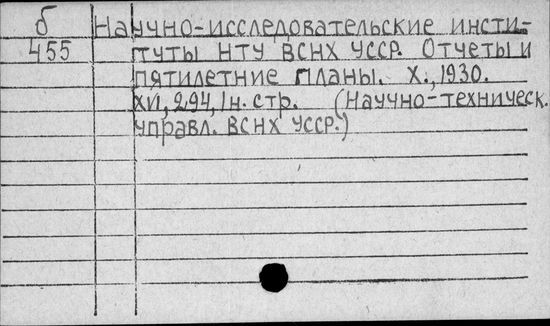 б Научно-исследовательские инсти-
455 туты НТУ ВСНХ УССР. Отчеты и
пятилетние планы. Х., 1930.
XVI, 294, 1 н. стр. (Научно-техническ.
управл. ВСНХ УССР.)